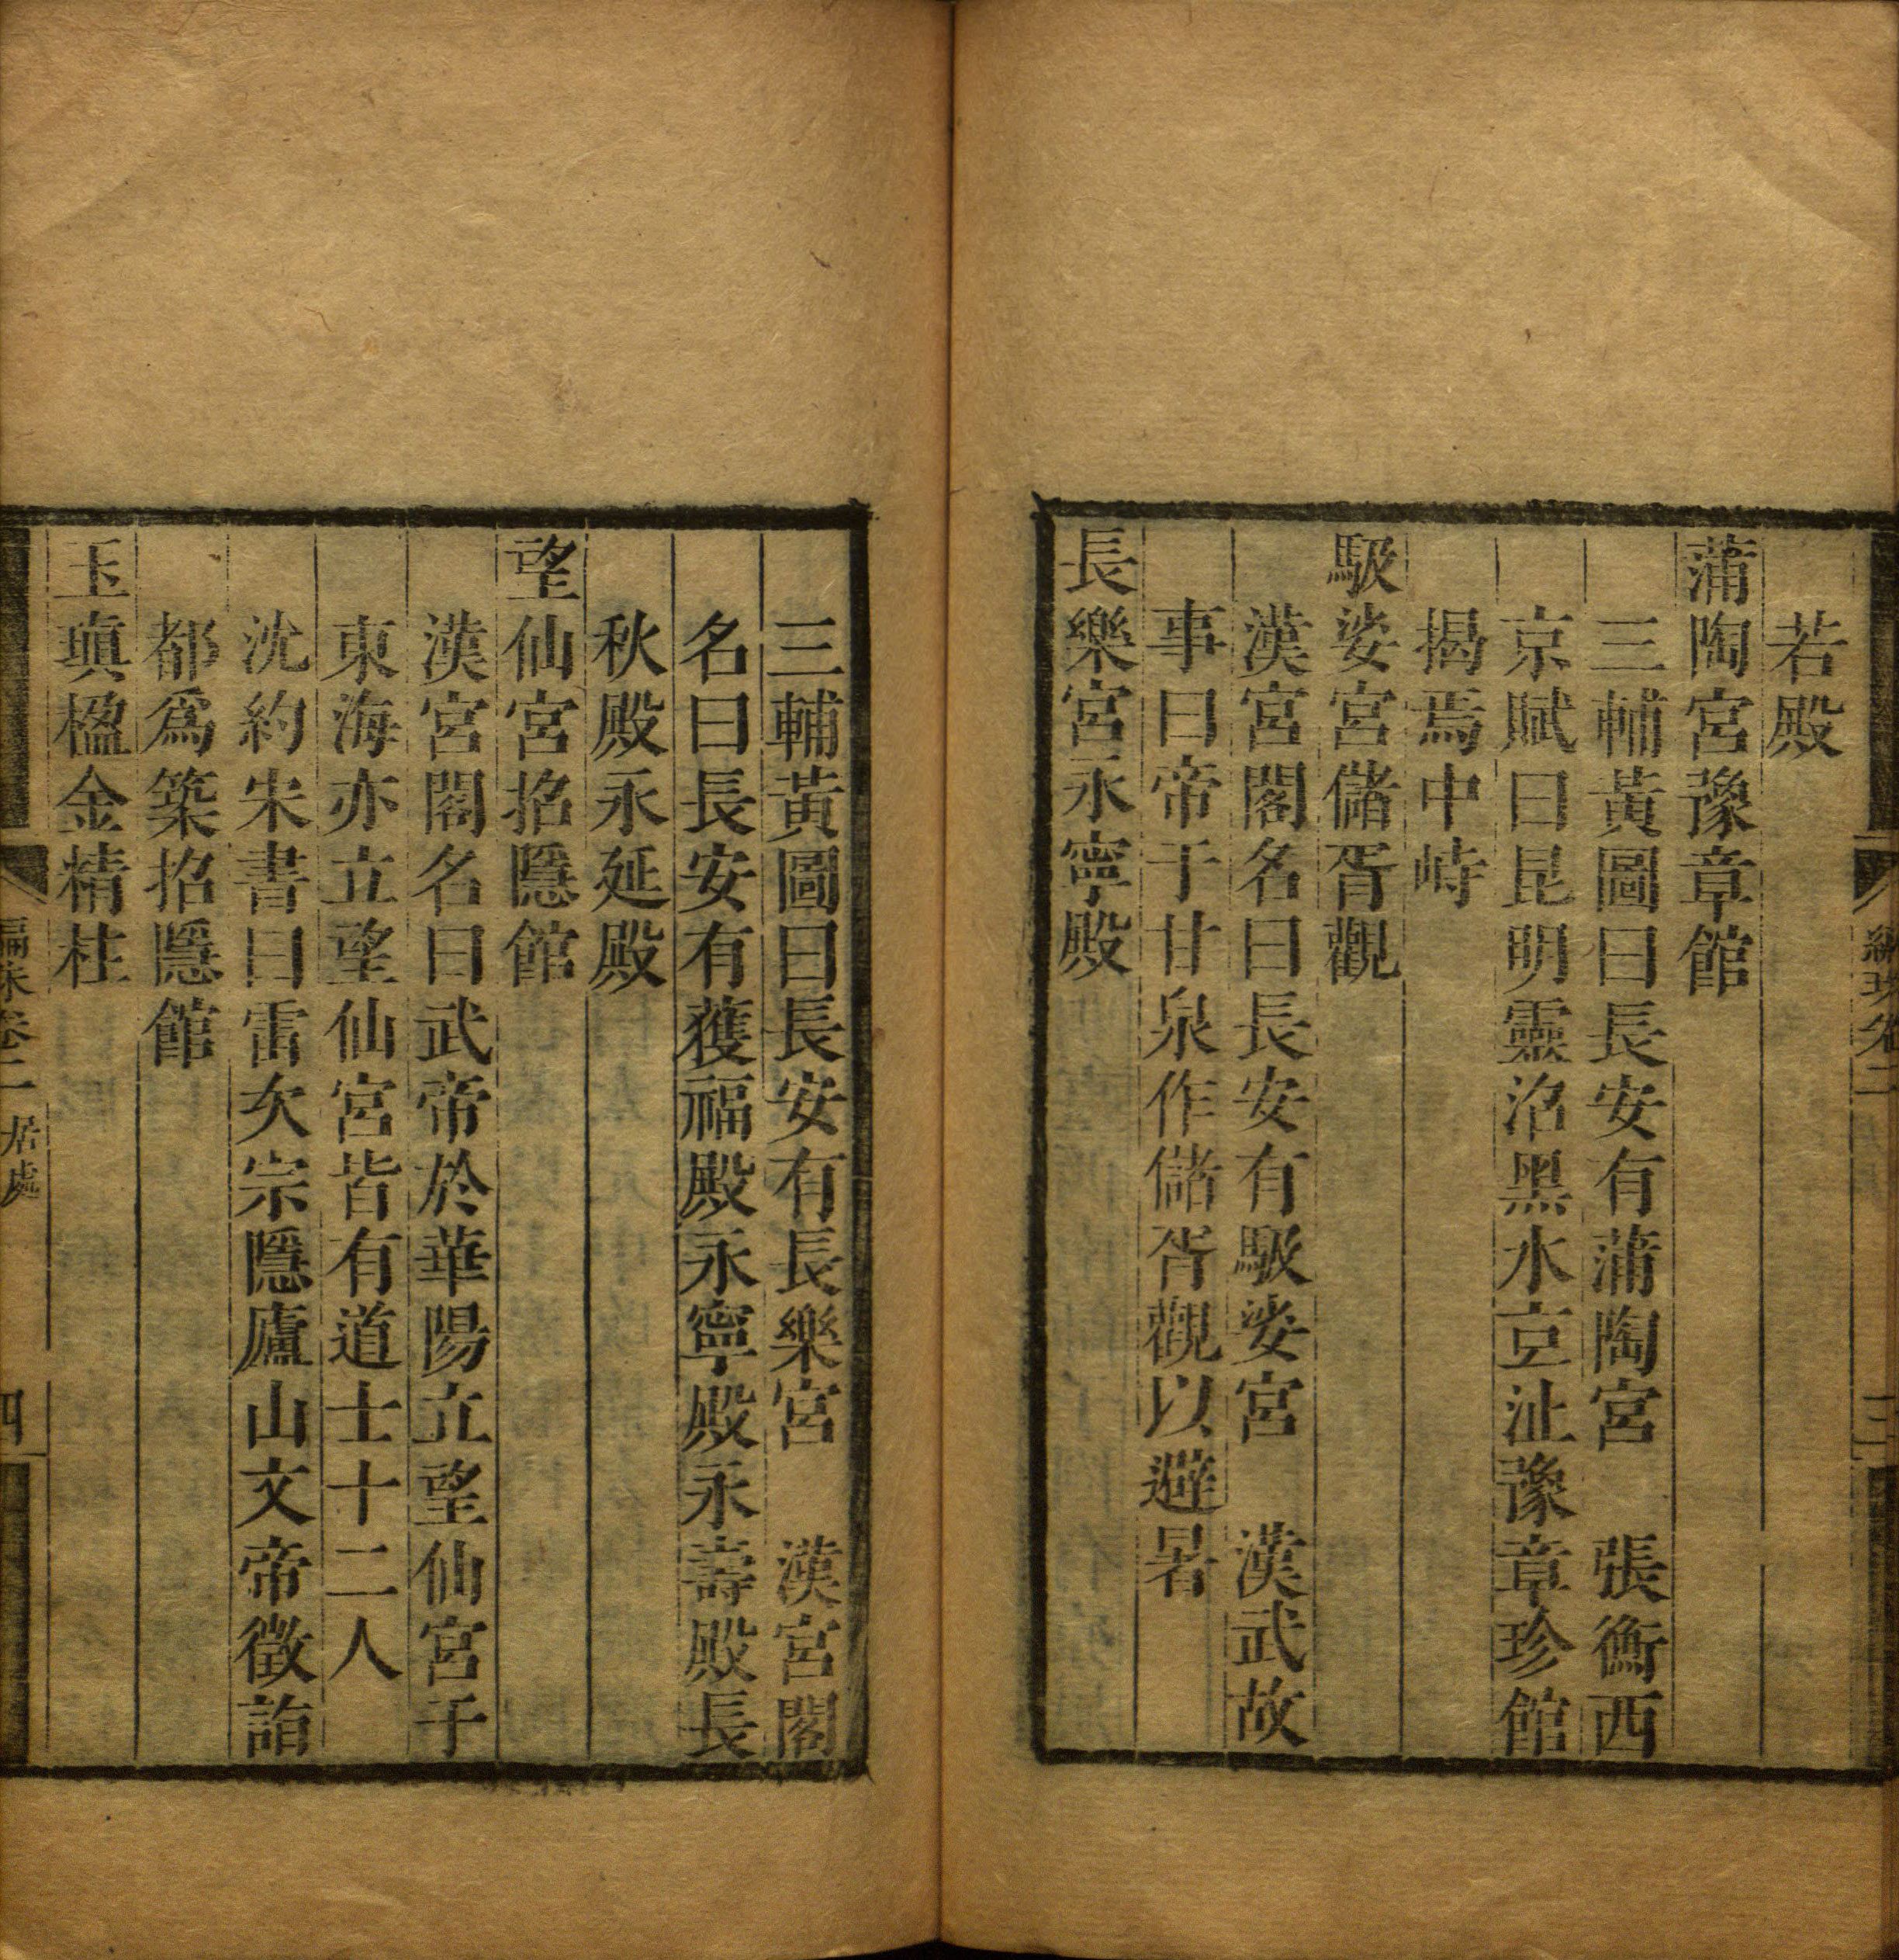 編珠卷二
三
若殿
蒲陶宮豫章館
三輔黃圖曰長安有蒲陶宮　張衡西
京賦曰昆明靈沼黑水玄沚豫章珍館
揭焉中峙
馺娑宮儲胥觀
漢宮閣名曰長安有馺娑宮　漢武故
事曰帝于甘泉作儲胥觀以避暑
長樂宮永寧殿
三輔黃圖曰長安有長樂宮　漢宮閣
名曰長安有獲福殿永寧殿永壽殿長
秋殿永延殿
望仙宮招隱館
漢宮閣名曰武帝於華陽立望仙宮于
東海亦立望仙宮皆有道士十二人
沈約宋書曰雷次宗隱廬山文帝徵詣
都爲築招隱館
玉瑱楹金精柱
編珠卷二　居處
四